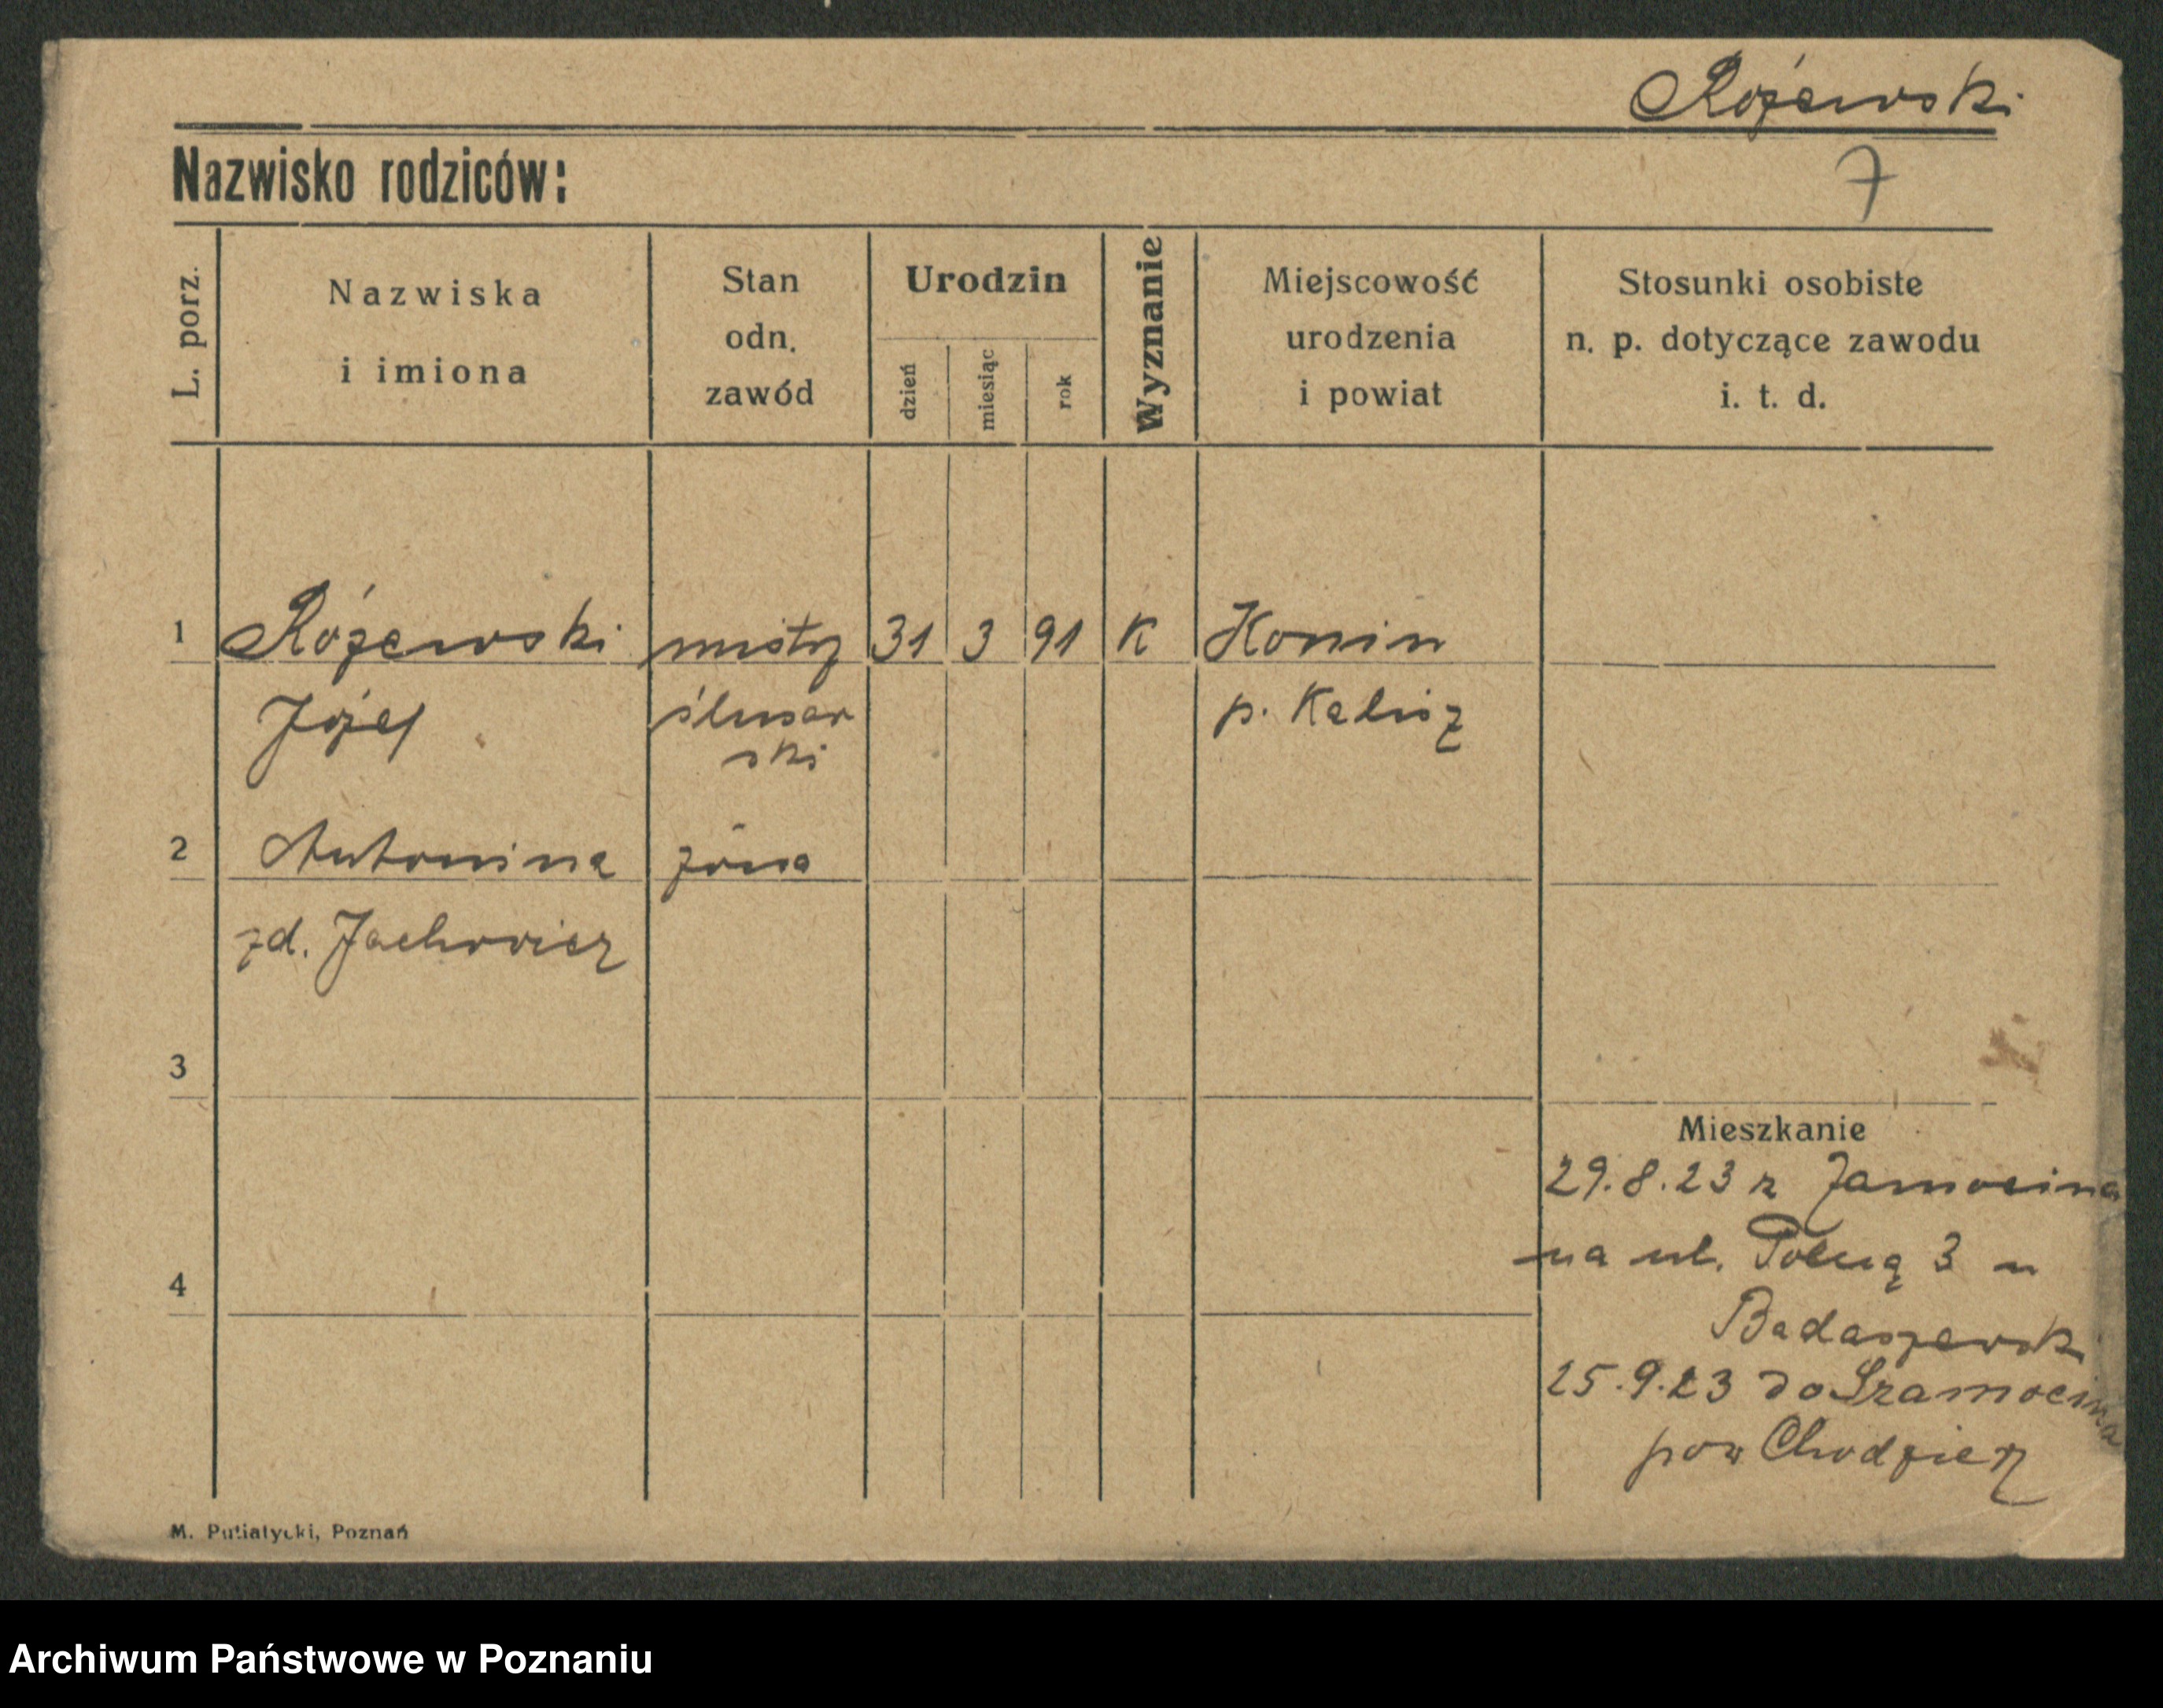 Różewski
Nazwisko rodziców:
7
L. porz.
Nazwiska
i imiona
Stan
odn.
zawód
Urodzin
dzień
miesiąc
rok
Wyznanie
Miejscowość
urodzenia
i powiat
Stosunki osobiste
n. p. dotyczące zawodu
i. t. d.
1 Różewski mistrz 31 3 91 K Konin
Józef ślusar p. Kalisz
ski
2 Antonina żona
zd. Jachowicz
3
Mieszkanie
29.8.23 z Jamocina
na ul. Polną 3 u
4
Badaszewski
25.9.23 do Szamocina
pow Chodzież
M. Putiatycki, Poznań
Archiwum Państwowe w Poznaniu